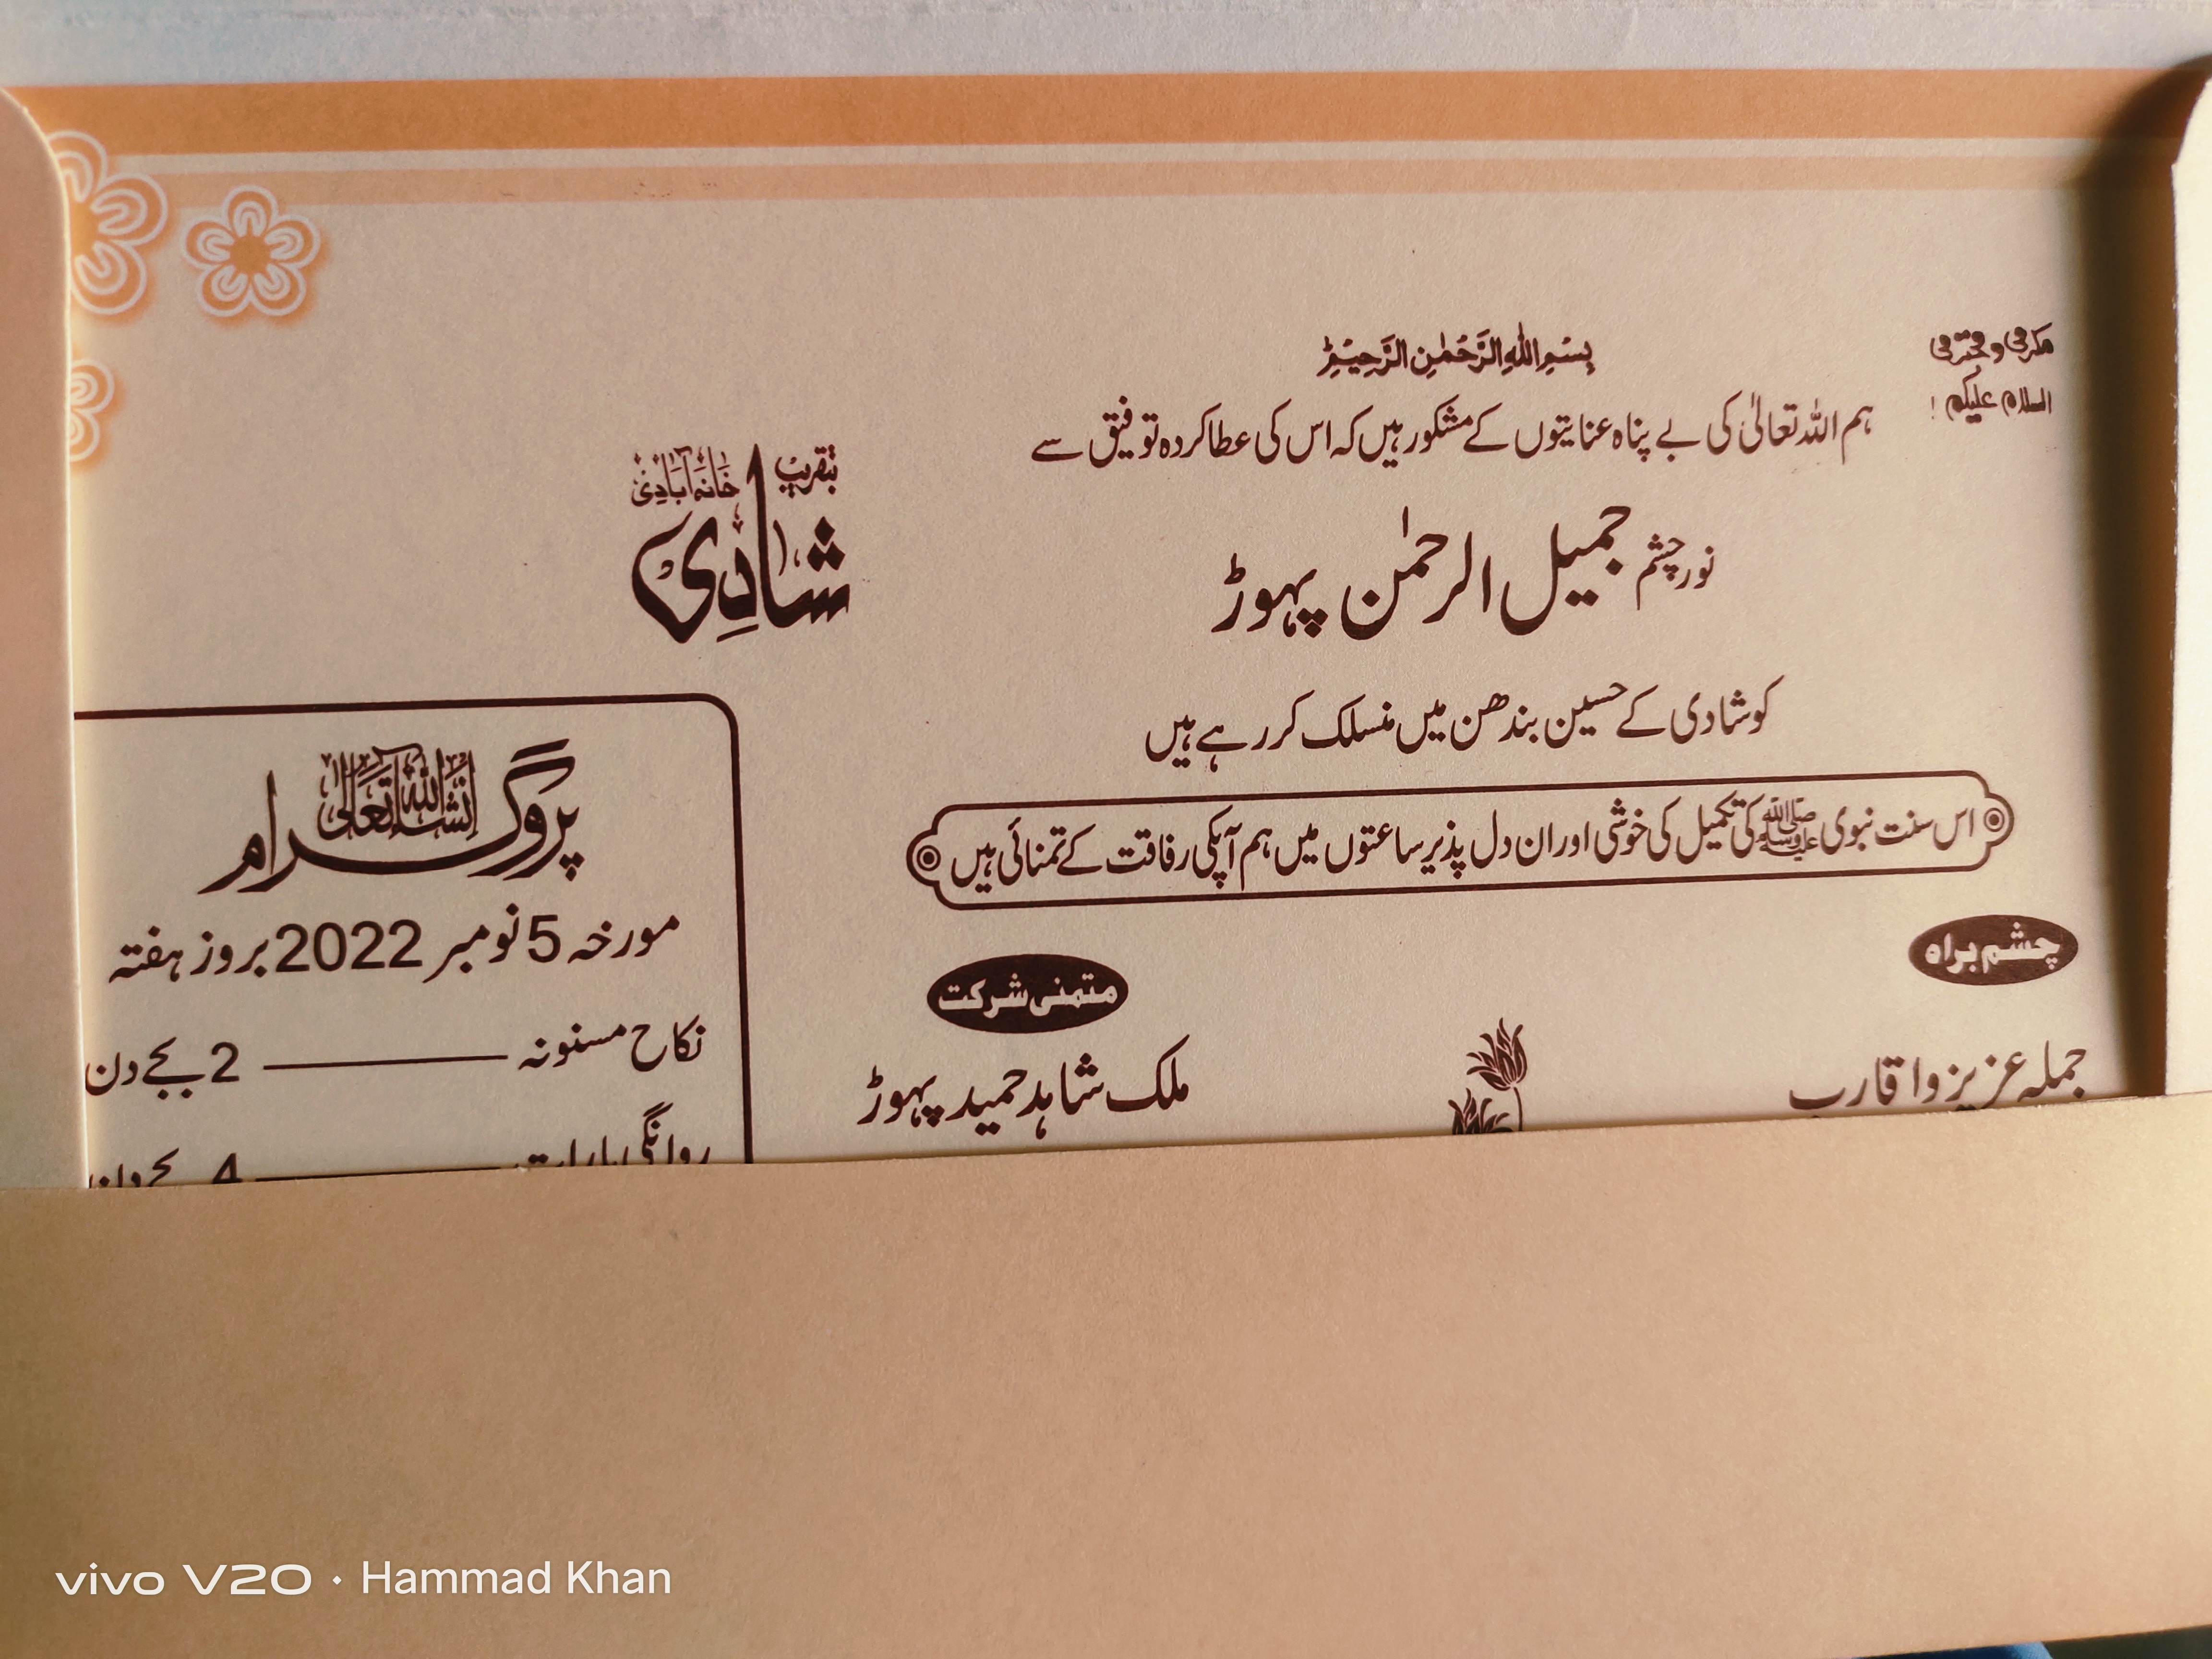 بِسْمِ اللهِ الرَّحْمٰنِ الرَّحِيْمِ
مکرمی و محترمی
السلام علیکم !
ہم اللہ تعالیٰ کی بے پناہ عنایتوں کے مشکور ہیں کہ اس کی عطا کردہ توفیق سے
نور چشم جمیل الرحمٰن پہوڑ
کو شادی کے حسین بندھن میں منسلک کر رہے ہیں
اس سنت نبوی ﷺ کی تکمیل کی خوشی اور ان دل پذیر ساعتوں میں ہم آپکی رفاقت کے تمنائی ہیں
چشم براہ
جملہ عزیز و اقارب
متمنی شرکت
ملک شاہد حمید پہوڑ
بتقریب خانہ آبادی
شادی
پروگرام انشاء اللہ تعالیٰ
مورخہ 5 نومبر 2022 بروز ہفتہ
نکاح مسنونہ ــــــــ 2 بجے دن
روانگی بارات ــــــــ 4 بجے دن
vivo V20 · Hammad Khan